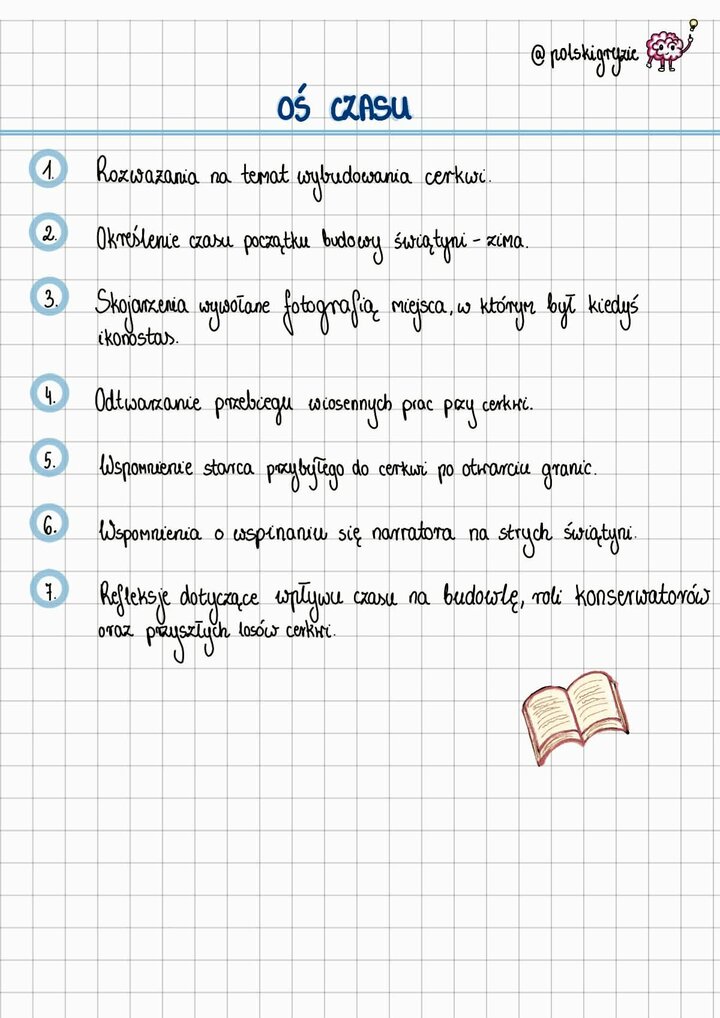 @polskigryzie
OŚ CZASU
1. Rozważania na temat wybudowania cerkwi.
2. Określenie czasu początku budowy świątyni - zima.
3. Skojarzenia wywołane fotografią miejsca, w którym był kiedyś
ikonostas.
4. Odtwarzanie przebiegu wiosennych prac przy cerkwi.
5. Wspomnienie starca przybyłego do cerkwi po otwarciu granic.
6. Wspomnienia o wspinaniu się narratora na strych świątyni.
7. Refleksje dotyczące wpływu czasu na budowlę, roli konserwatorów
oraz przyszłych losów cerkwi.